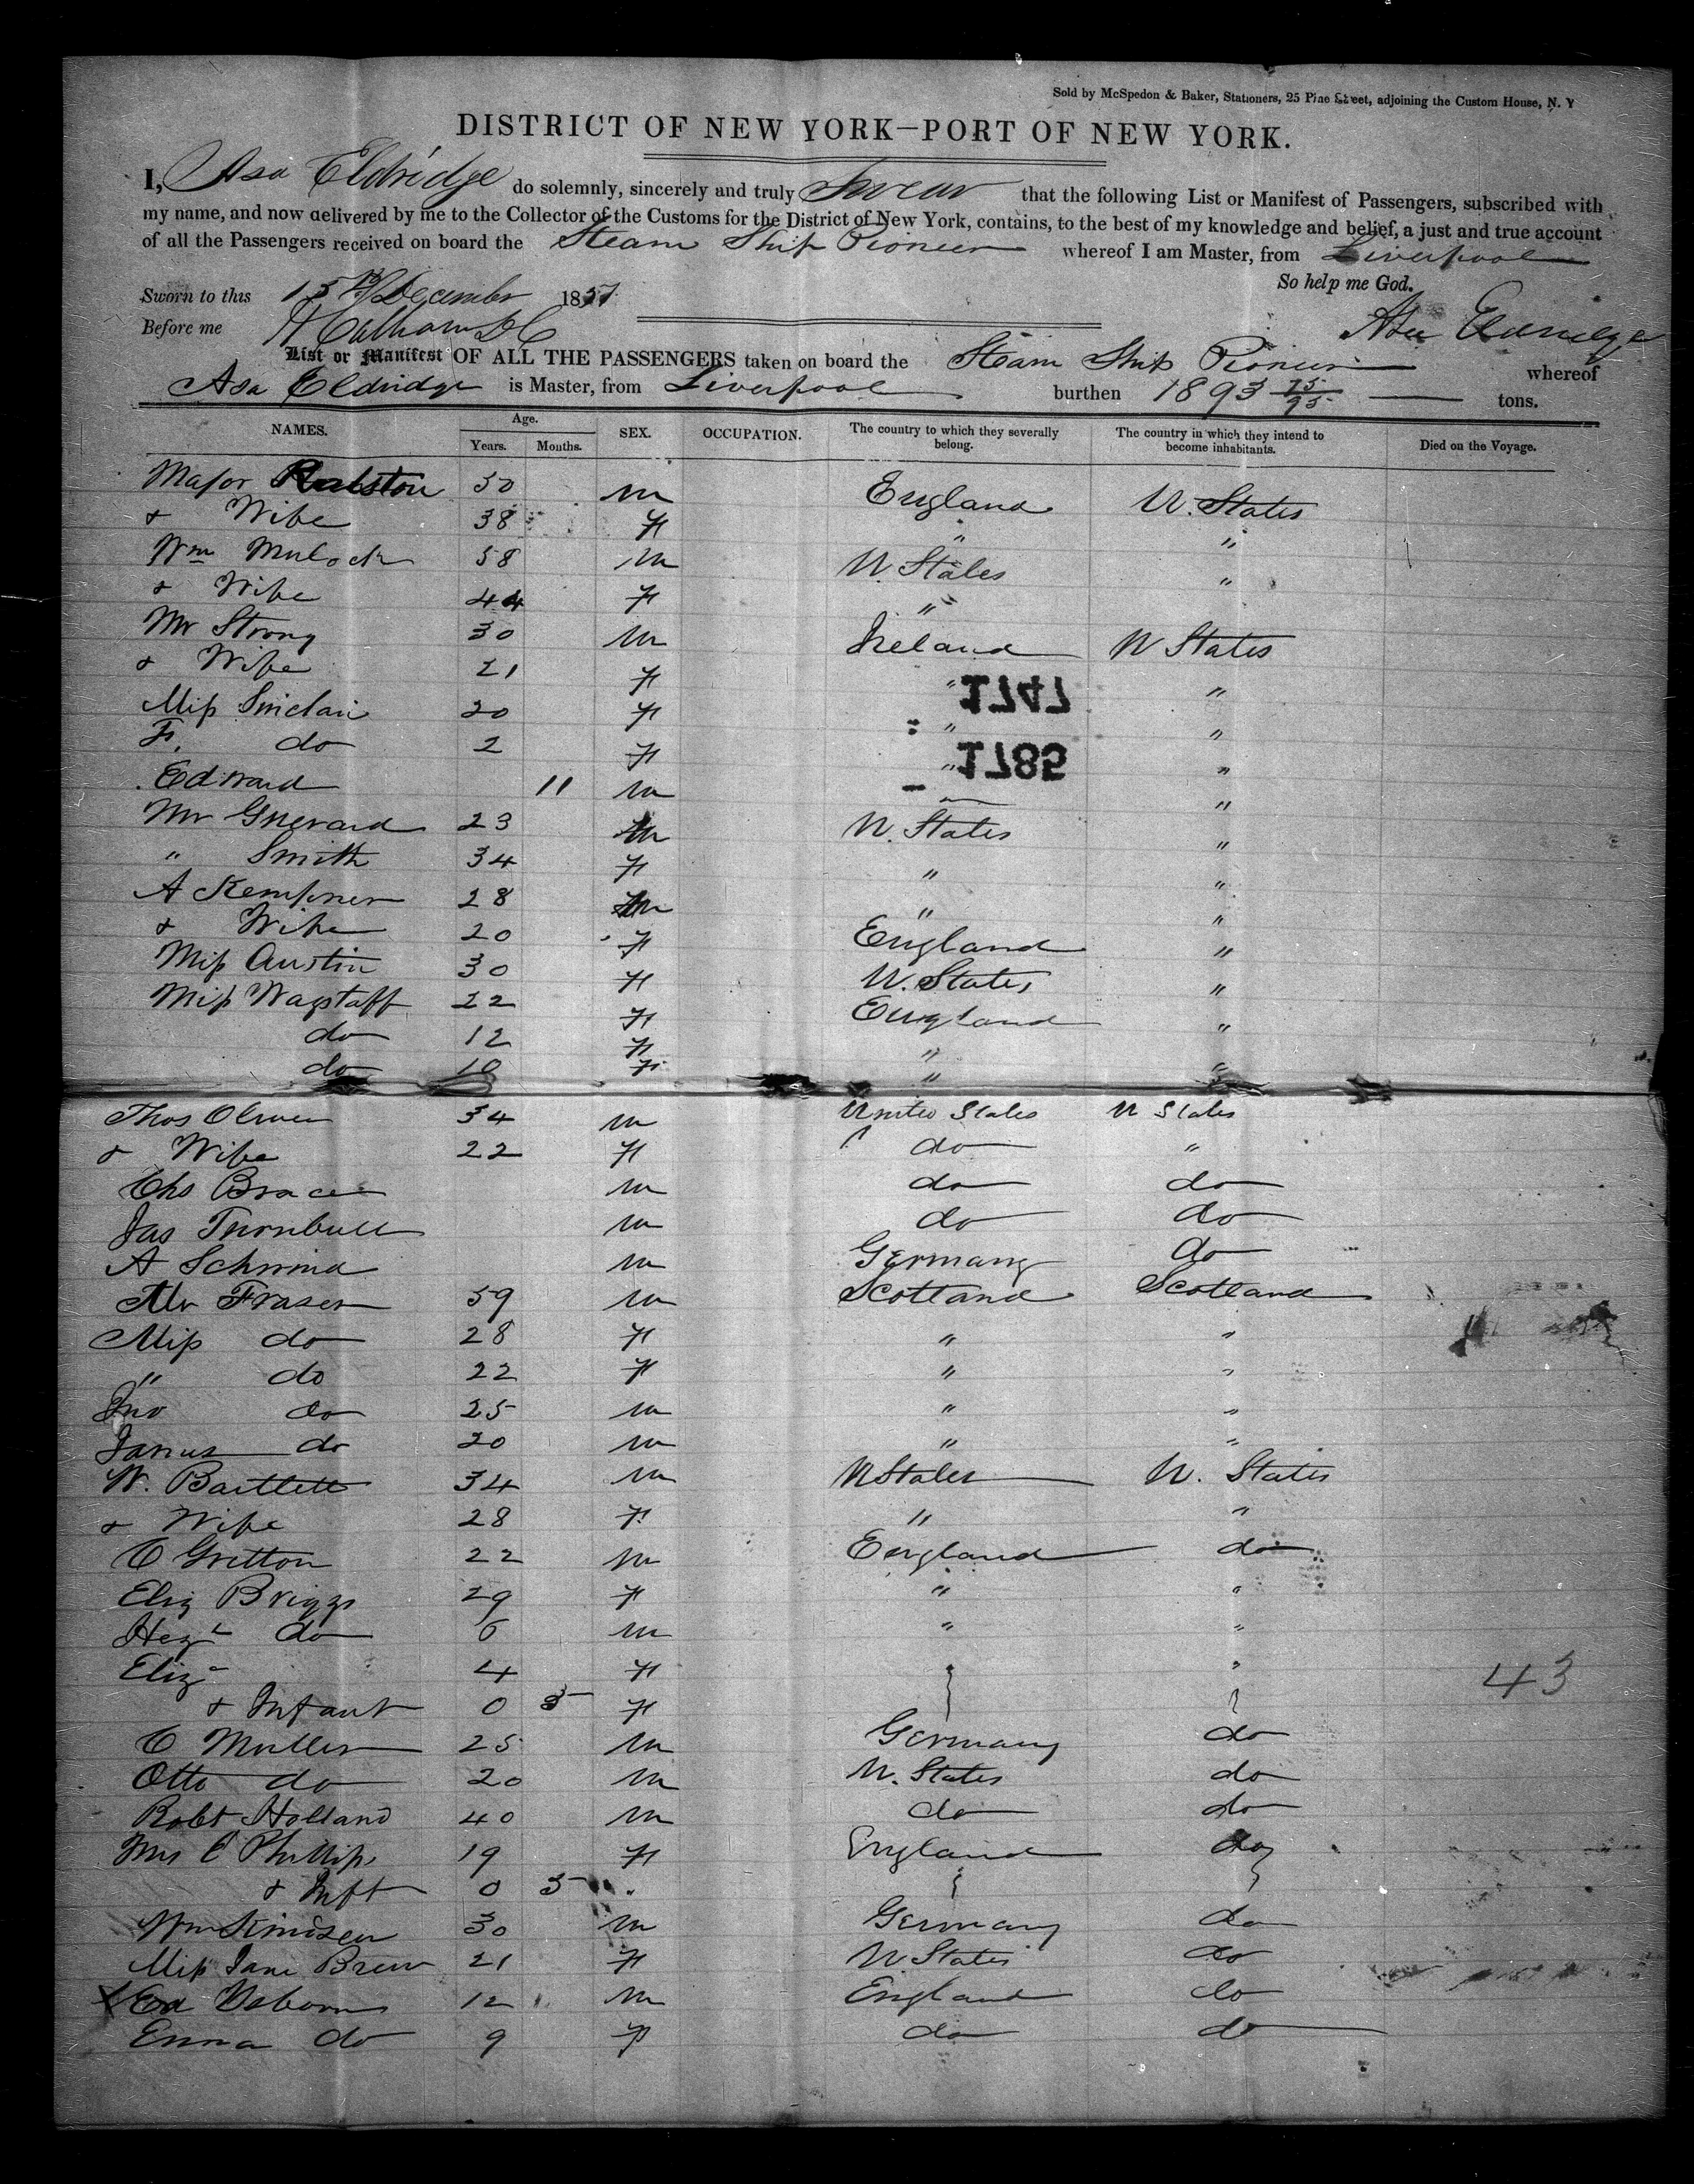 Sold by McSpedon & Baker, Stationers, 25 Pine Street, adjoining the Custom House, N. Y
DISTRICT OF NEW YORK—PORT OF NEW YORK.
I, Asa Eldridge do solemnly, sincerely and truly Swear that the following List or Manifest of Passengers, subscribed with
my name, and now delivered by me to the Collector of the Customs for the District of New York, contains, to the best of my knowledge and belief, a just and true account
of all the Passengers received on board the Steam Ship Pioneer whereof I am Master, from Liverpool
So help me God.
Sworn to this 15th December 1851
Before me
Asa Eldridge
List or Manifest OF ALL THE PASSENGERS taken on board the Steam Ship Pioneer whereof
Asa Eldridge is Master, from Liverpool burthen 1893 75/95 tons.
NAMES. Age. Years. Months. SEX. OCCUPATION. The country to which they severally belong. The country in which they intend to become inhabitants. Died on the Voyage.
Major Ralston 50 m England U. States
& Wife 38 F " "
Wm Mulock 58 m U. States "
& Wife 44 F " "
Mr Strong 30 m Ireland U States
& Wife 21 F " "
1747
Miss Sinclair 20 F " "
F. do 2 F " "
1785
Edward 11 m "
Mr Guerard 23 m U. States "
" Smith 34 F " "
A Kempner 28 m " "
& Wife 20 F England "
Miss Austin 30 F U. States "
Miss Wagstaff 22 F England "
do 12 F " "
do 10 F " "
Thos Oliver 34 m United States U States
& Wife 22 F do "
Chs Brace m do do
Jas Turnbull m do do
A m Germany do
Mr Fraser 59 m Scotland Scotland
Miss do 28 F " "
" do 22 F " "
Jno do 25 m " "
James do 20 m " "
W. Bartlett 34 m U States U. States
& Wife 28 F " "
C Gretton 22 m England do
Eliz Briggs 29 F " "
do 6 m " "
Eliz 4 F " "
43
& Infant 0 F
C Muller 25 m Germany do
Otto do 20 m U. States do
Robt Holland 40 m do do
Mrs C Phillips 19 F England do
& Inft 0 5
Wm 30 m Germany do
Miss Jane Brew 21 F U States do
Ed Osborn 12 m England do
Emma do 9 F do do